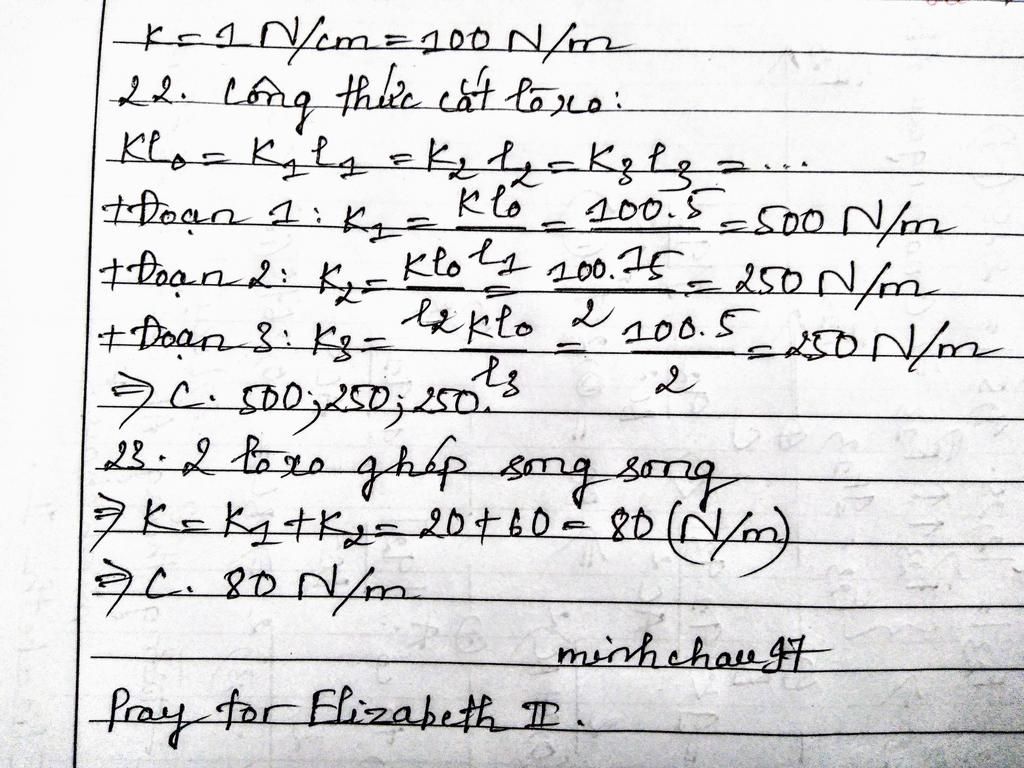 K = 1 N/cm = 100 N/m
22. Công thức cắt lò xo:
Kl₀ = K₁l₁ = K₂l₂ = K₃l₃ = ...
+ Đoạn 1: K₁ = Kl₀/l₁ = 100.5/1 = 500 N/m
+ Đoạn 2: K₂ = Kl₀/l₂ = 100.5/2 = 250 N/m
+ Đoạn 3: K₃ = Kl₀/l₃ = 100.5/2 = 250 N/m
⇒ C. 500; 250; 250.
23. 2 lò xo ghép song song
⇒ K = K₁ + K₂ = 20 + 60 = 80 (N/m)
⇒ C. 80 N/m
minhchau97
Pray for Elizabeth II.